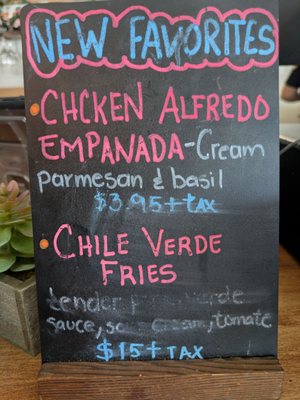 NEW FAVORITES
CHCKEN ALFREDO
EMPANADA-Cream
parmesan & basil
$3.95+TAX
CHILE VERDE
FRIES
tender verde
sauce, sour cream, tomate
$15+TAX